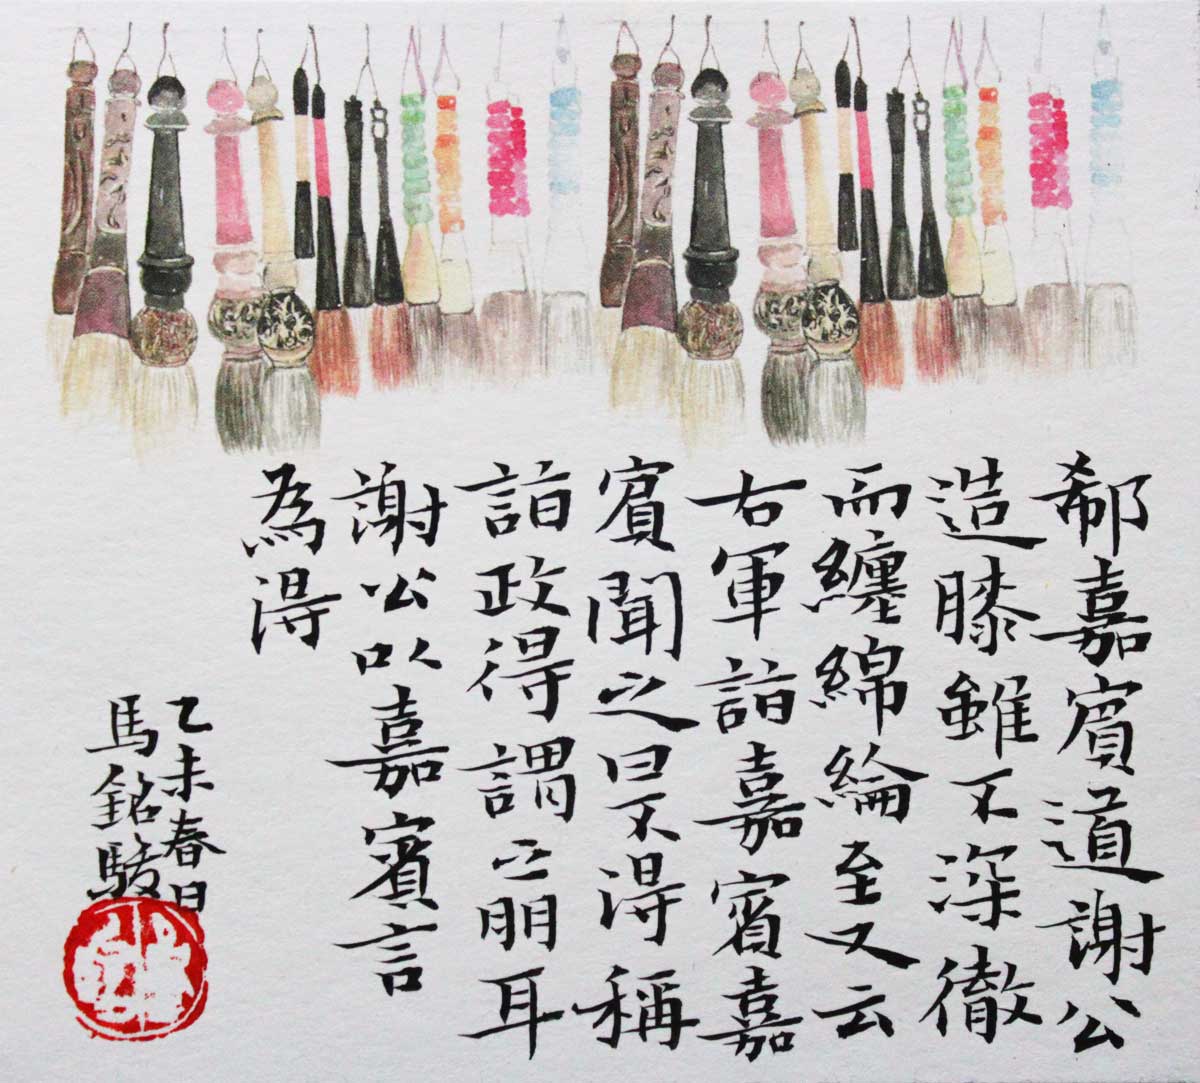 郗嘉賓道謝公
造膝雖不深徹
而纏綿綸至又云
右軍詣嘉賓嘉
賓聞之曰不得稱
詣政得謂之朋耳
謝公以嘉賓言
為得
乙未春日
馬銘駿